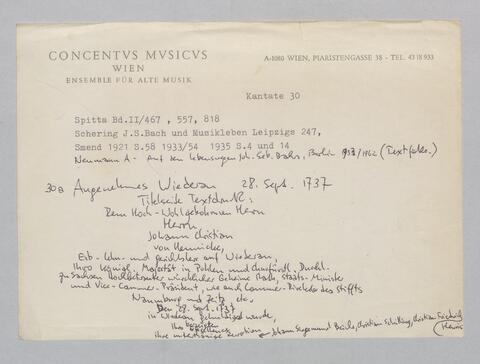 CONCENTVS MVSICVS
WIEN
ENSEMBLE FÜR ALTE MUSIK
A-1080 WIEN, PIARISTENGASSE 38 - TEL. 43 18 933
Kantate 30
Spitta Bd.II/467 , 557, 818
Schering J.S.Bach und Musikleben Leipzigs 247,
Smend 1921 S.58 1933/54 1935 S.4 und 14
Neumann A- Auf den Lebenswegen Joh. Seb. Bachs, Berlin 1962 (Textfaks.)
30a Angenehmes Wiederau 28. Sept. 1737
Titelseite Textdruck:
Dem Hoch-Wohlgebohrnen Herrn
Herrn
Johann Christian
von Hennicke,
Erb- Lehn- und Gerichtsherr auf Wiederau,
Ihro Königl. Majestät in Pohlen und Churfürstl. Durchl.
zu Sachsen Hochbetrauter wirklicher Geheime Rath, Staats-Ministre
und Vice-Cammer-Präsident, wie auch Cammer-Direktor des Stiffts
Naumburg und Zeitz etc.
Den 28. Sept. 1737
in Wiederau gehuldiget wurde,
Ihre
Excellence
ihre unterthänige devotion Johann Siegemund Christian Schilling, Christian Friedrich